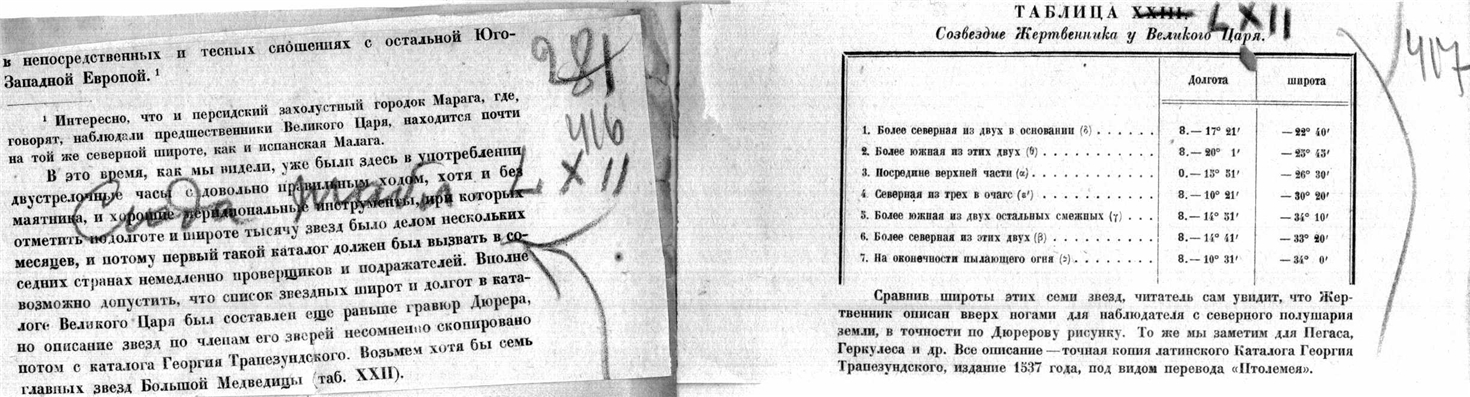 в непосредственных и тесных сношениях с остальной Юго-
Западной Европой. ¹
281
¹ Интересно, что и персидский захолустный городок Марага, где,
говорят, наблюдали предшественники Великого Царя, находится почти
на той же северной широте, как и испанская Малага.
416
В это время, как мы видели, уже были здесь в употреблении
двустрелочные часы с довольно правильным ходом, хотя и без
Сюда табл LXII
маятника, и хорошие меридиональные инструменты, при которых
отметить по долготе и широте тысячу звезд было делом нескольких
месяцев, и потому первый такой каталог должен был вызвать в со-
седних странах немедленно проверщиков и подражателей. Вполне
возможно допустить, что список звездных широт и долгот в ката-
логе Великого Царя был составлен еще раньше гравюр Дюрера,
но описание звезд по членам его зверей несомненно скопировано
потом с каталога Георгия Трапезундского. Возьмем хотя бы семь
главных звезд Большой Медведицы (таб. XXII).
ТАБЛИЦА XXIII. LXII
Созвездие Жертвенника у Великого Царя.
417
Долгота широта
1. Более северная из двух в основании (δ) . . . . . . 8.— 17° 21′ —22° 40′
2. Более южная из этих двух (θ) . . . . . . . . . . . 8.— 20° 1′ —25° 45′
3. Посредине верхней части (α) . . . . . . . . . . . . 0.— 15° 51′ —26° 30′
4. Северная из трех в очаге (ε′) . . . . . . . . . . . 8.— 10° 21′ —30° 20′
5. Более южная из двух остальных смежных (γ) . . . . 8.— 14° 51′ —34° 10′
6. Более северная из этих двух (β) . . . . . . . . . . 8.— 14° 41′ —33° 20′
7. На оконечности пылающего огня (ε) . . . . . . . . 8.— 10° 31′ —34° 0′
Сравнив широты этих семи звезд, читатель сам увидит, что Жер-
твенник описан вверх ногами для наблюдателя с северного полушария
земли, в точности по Дюрерову рисунку. То же мы заметим для Пегаса,
Геркулеса и др. Все описание — точная копия латинского Каталога Георгия
Трапезундского, издание 1537 года, под видом перевода «Птолемея».